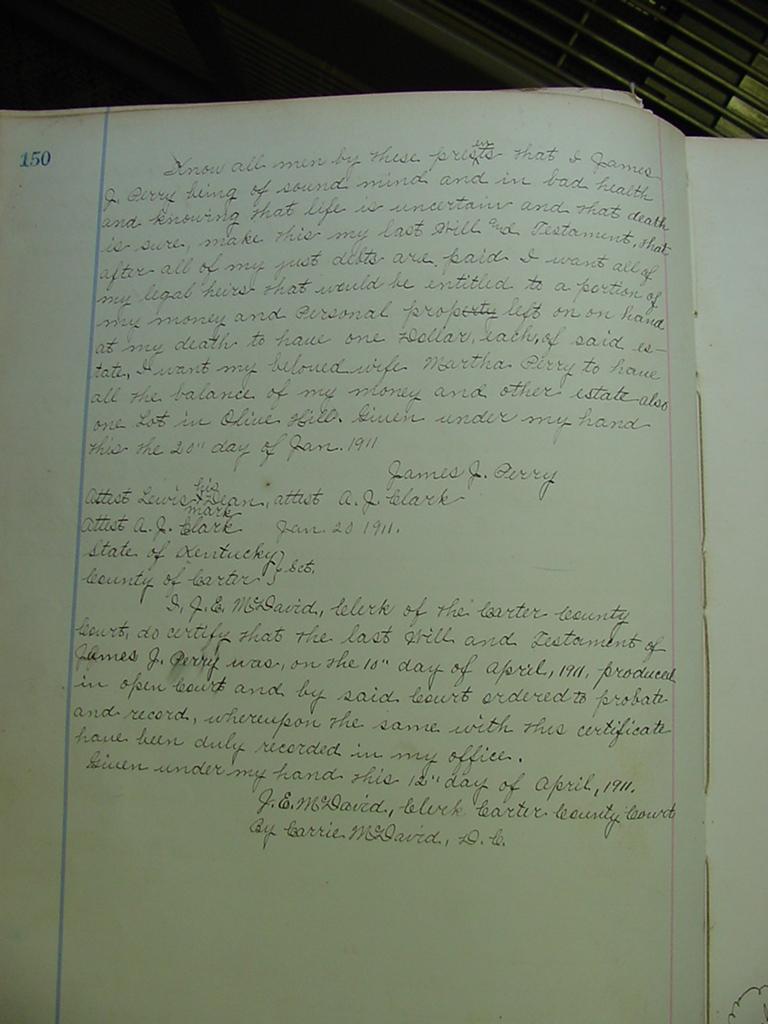 150
Know all men by these presents that I James
J. Perry being of sound mind and in bad health
and knowing that life is uncertain and that death
is sure, make this my last Will and Testament, that
after all of my just debts are paid I want all of
my legal heirs that would be entitled to a portion of
my money and Personal property left on on hand
at my death to have one Dollar, each, of said es-
tate, I want my beloved wife Martha Perry to have
all the balance of my money and other estate also
one Lot in Olive Hill. Given under my hand
this the 20" day of Jan. 1911
James J. Perry
Attest Lewis his X mark Dean, attest A. J. Clark
Attest A. J. Clark Jan. 20 1911.
State of Kentucky }
County of Carter } Sct.
I, J. E. McDavid, Clerk of the Carter County
Court, do certify that the last Will and Testament of
James J. Perry was, on the 10" day of April, 1911, produced
in open Court and by said Court ordered to probate
and record, whereupon the same with this certificate
have been duly recorded in my office.
Given under my hand this 12" day of April, 1911.
J. E. McDavid, Clerk Carter County Court
By Carrie McDavid, D. C.